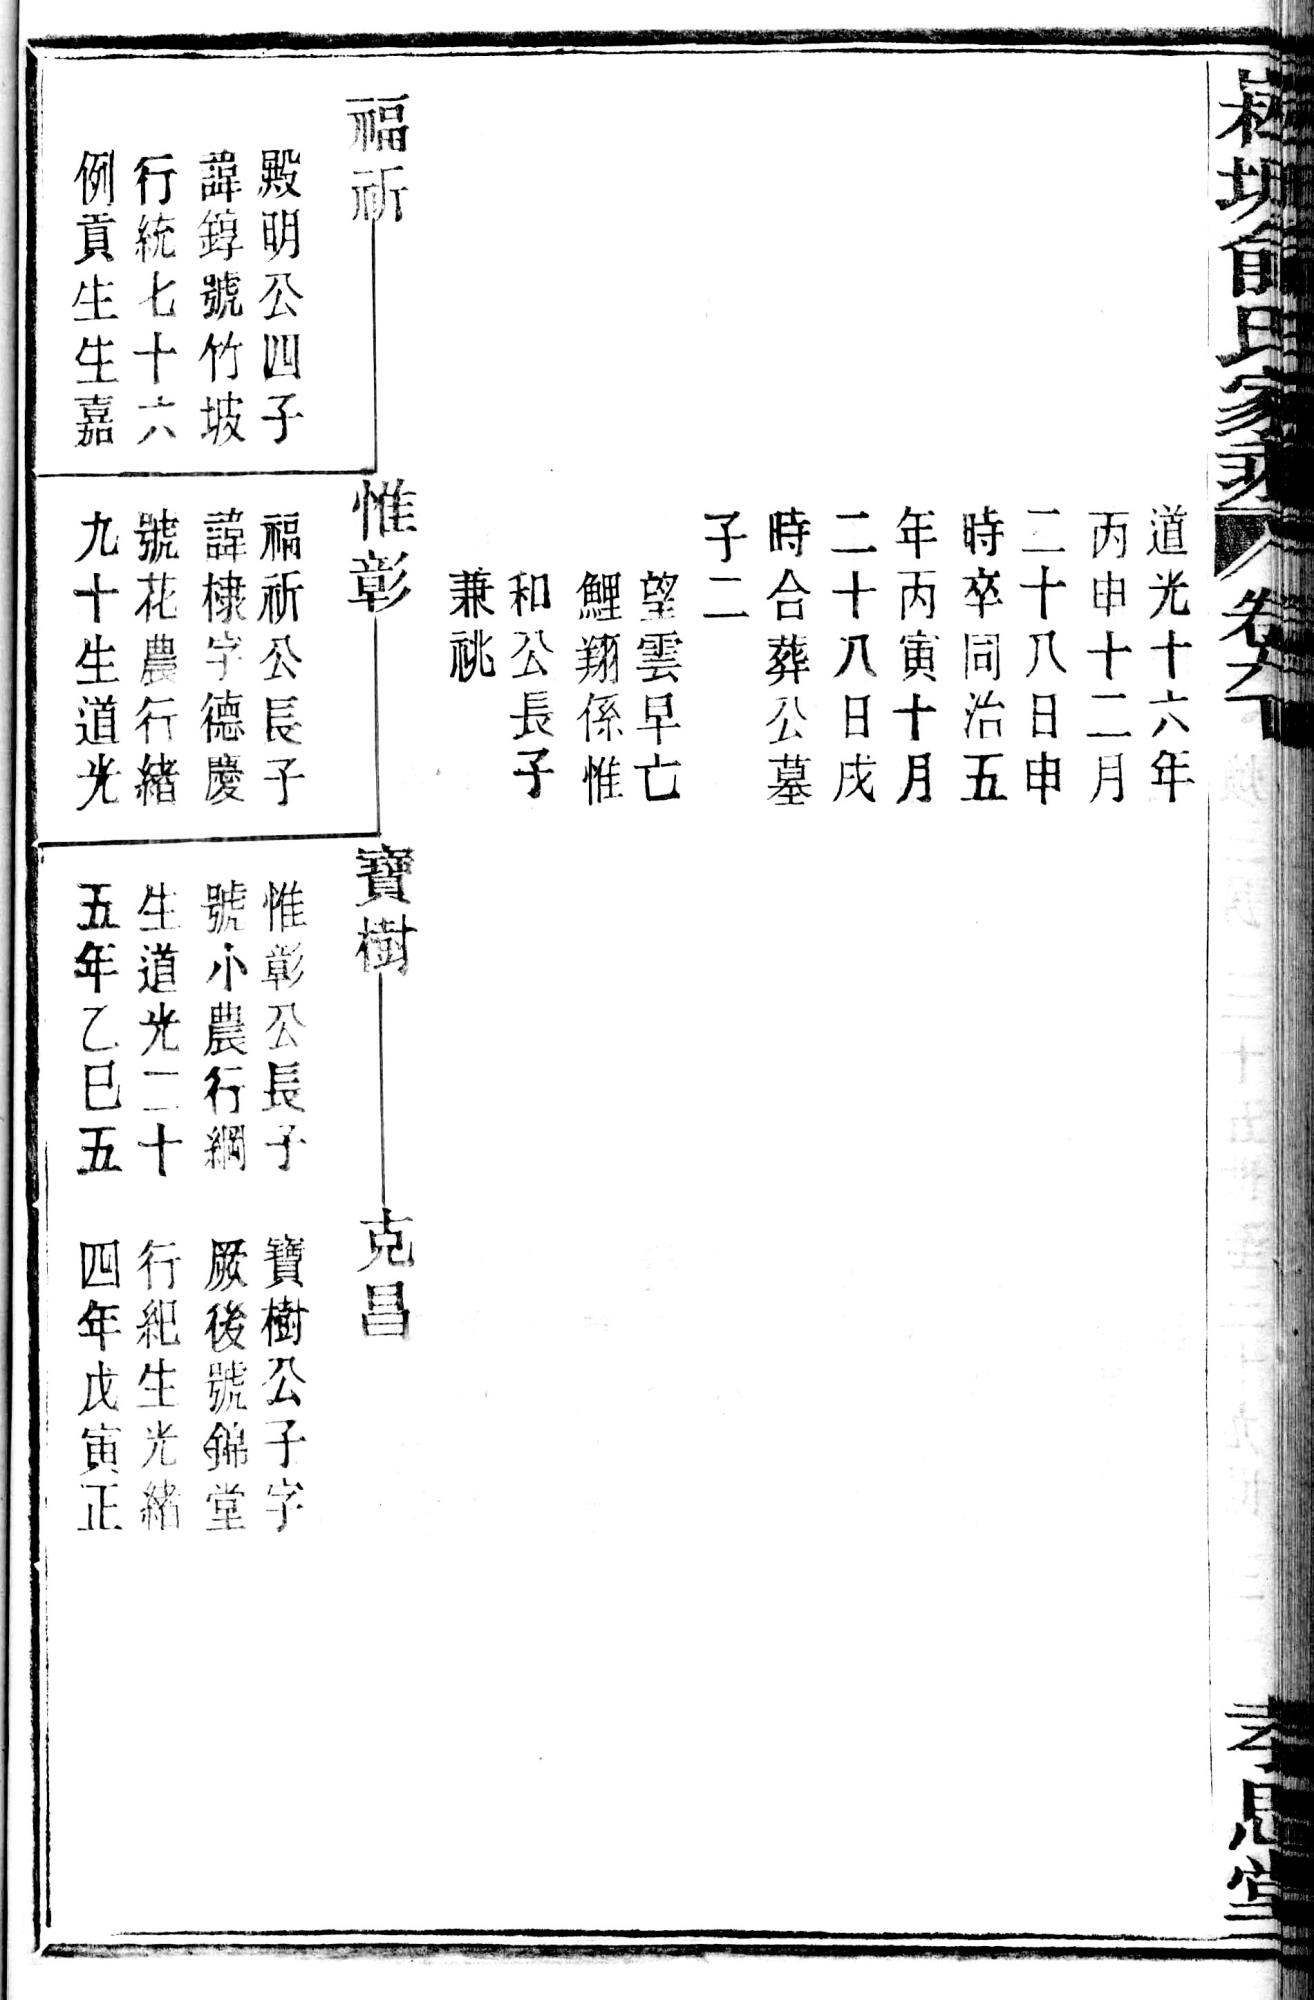 俞氏家乘
卷六
孝思堂
道光十六年
丙申十二月
二十八日申
時卒同治五
年丙寅十月
二十八日戌
時合葬公墓
子二
望雲早亡
鯉翔係惟
和公長子
兼祧
福祈
殿明公四子
諱錞號竹坡
行統七十六
例貢生生嘉
惟彰
福祈公長子
諱棣字德慶
號花農行緒
九十生道光
寶樹
惟彰公長子
號小農行綱
生道光二十
五年乙巳五
克昌
寶樹公子字
厥後號錦堂
行紀生光緒
四年戊寅正